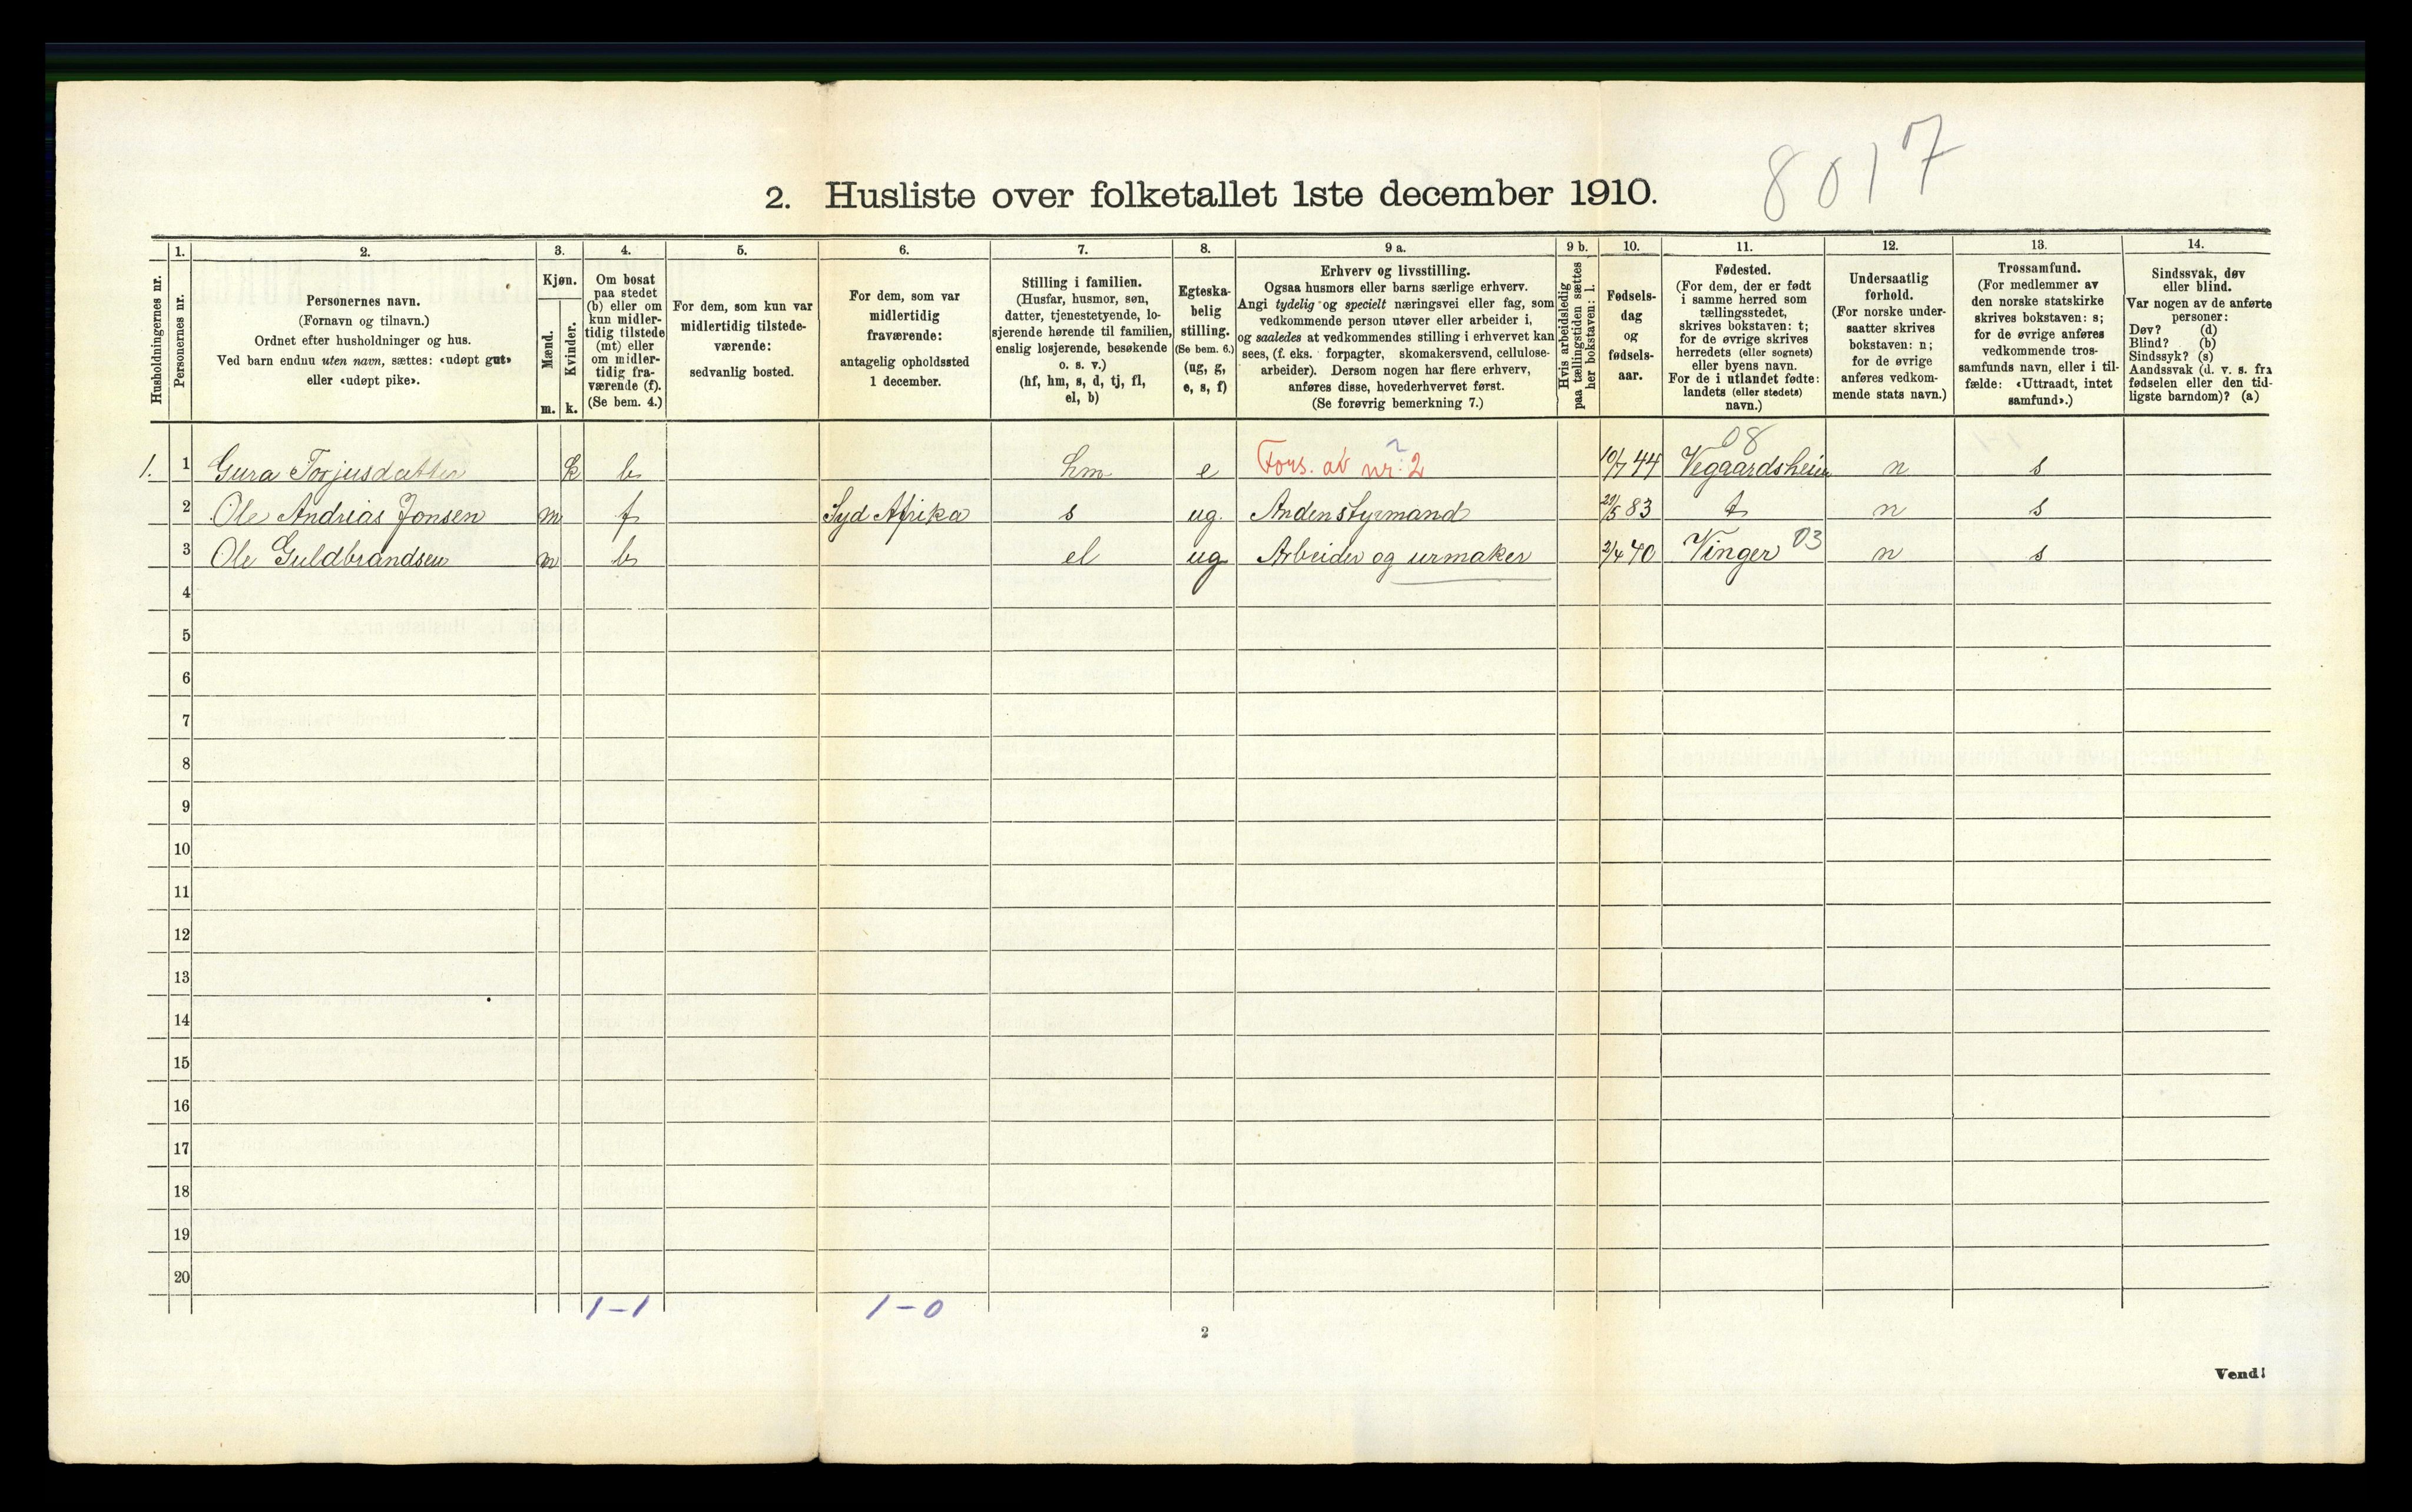 8017
2. Husliste over folketallet 1ste december 1910.
Husholdningernes nr.
1.
Personernes nr.
2.
Personernes navn.
(Fornavn og tilnavn.)
Ordnet efter husholdninger og hus.
Ved barn endnu uten navn, sættes: «udøpt gut»
eller «udøpt pike».
3.
Kjøn.
Mænd.
m.
Kvinder.
k.
4.
Om bosat
paa stedet
(b) eller om
kun midler-
tidig tilstede
(mt) eller
om midler-
tidig fra-
værende (f).
(Se bem. 4.)
5.
For dem, som kun var
midlertidig tilstede-
værende:
sedvanlig bosted.
6.
For dem, som var
midlertidig
fraværende:
antagelig opholdssted
1 december.
7.
Stilling i familien.
(Husfar, husmor, søn,
datter, tjenestetyende, lo-
sjerende hørende til familien,
enslig losjerende, besøkende
o. s. v.)
(hf, hm, s, d, tj, fl,
el, b)
8.
Egteska-
belig
stilling.
(Se bem. 6.)
(ug, g,
e, s, f)
9 a.
Erhverv og livsstilling.
Ogsaa husmors eller barns særlige erhverv.
Angi tydelig og specielt næringsvei eller fag, som
vedkommende person utøver eller arbeider i,
og saaledes at vedkommendes stilling i erhvervet kan
sees, (f. eks. forpagter, skomakersvend, cellulose-
arbeider). Dersom nogen har flere erhverv,
anføres disse, hovederhvervet først.
(Se forøvrig bemerkning 7.)
9 b.
Hvis arbeidsledig
paa tællingstiden sættes
her bokstaven: l.
10.
Fødsels-
dag
og
fødsels-
aar.
11.
Fødested.
(For dem, der er født
i samme herred som
tællingsstedet,
skrives bokstaven: t;
for de øvrige skrives
herredets (eller sognets)
eller byens navn.
For de i utlandet fødte:
landets (eller stedets)
navn.)
12.
Undersaatlig
forhold.
(For norske under-
saatter skrives
bokstaven: n;
for de øvrige
anføres vedkom-
mende stats navn.)
13.
Trossamfund.
(For medlemmer av
den norske statskirke
skrives bokstaven: s;
for de øvrige anføres
vedkommende tros-
samfunds navn, eller i til-
fælde: «Uttraadt, intet
samfund».)
14.
Sindssvak, døv
eller blind.
Var nogen av de anførte
personer:
Døv? (d)
Blind? (b)
Sindssyk? (s)
Aandssvak (d. v. s. fra
fødselen eller den tid-
ligste barndom)? (a)
08
1. 1 Gura Torjusdatter k b hm e Fors. av nr. 2 10/7 44 Vegaardsheien n s
2 Ole Andrias Jonsen m f Syd Afrika s ug. Anden styrmand 29/5 83 t n s
3 Ole Guldbrandsen m b el ug Arbeider og urmaker 2/4 40 Vinger 03 n s
4
5
6
7
8
9
10
11
12
13
14
15
16
17
18
19
20
1-1 1-0
2
Vend!